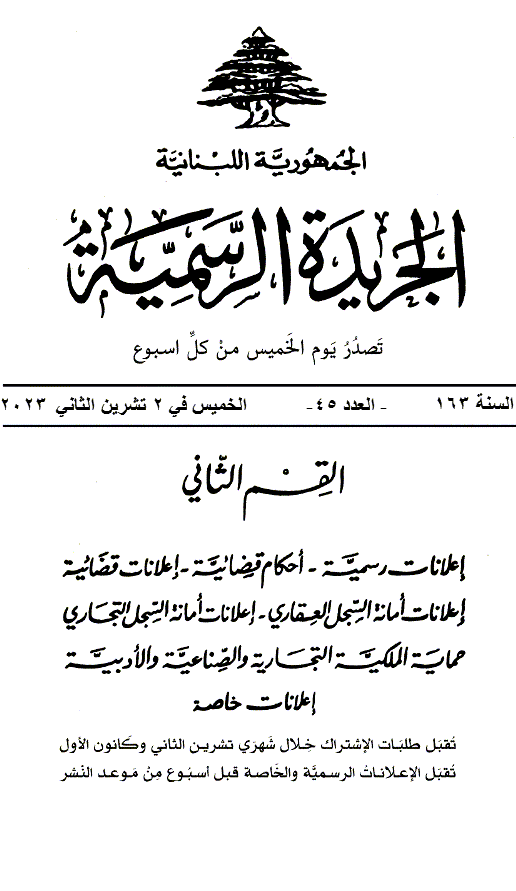 الجمهورية اللبنانية
الجريدة الرسمية
تصدر يوم الخميس من كل اسبوع
السنة ١٦٣ - العدد ٤٥ - الخميس في ٢ تشرين الثاني ٢٠٢٣
القسم الثاني
إعلانات رسمية - أحكام قضائية - إعلانات قضائية
إعلانات أمانة السجل العقاري - إعلانات أمانة السجل التجاري
حماية الملكية التجارية والصناعية والأدبية
إعلانات خاصة
تقبل طلبات الإشتراك خلال شهري تشرين الثاني وكانون الأول
تقبل الإعلانات الرسمية والخاصة قبل أسبوع من موعد النشر